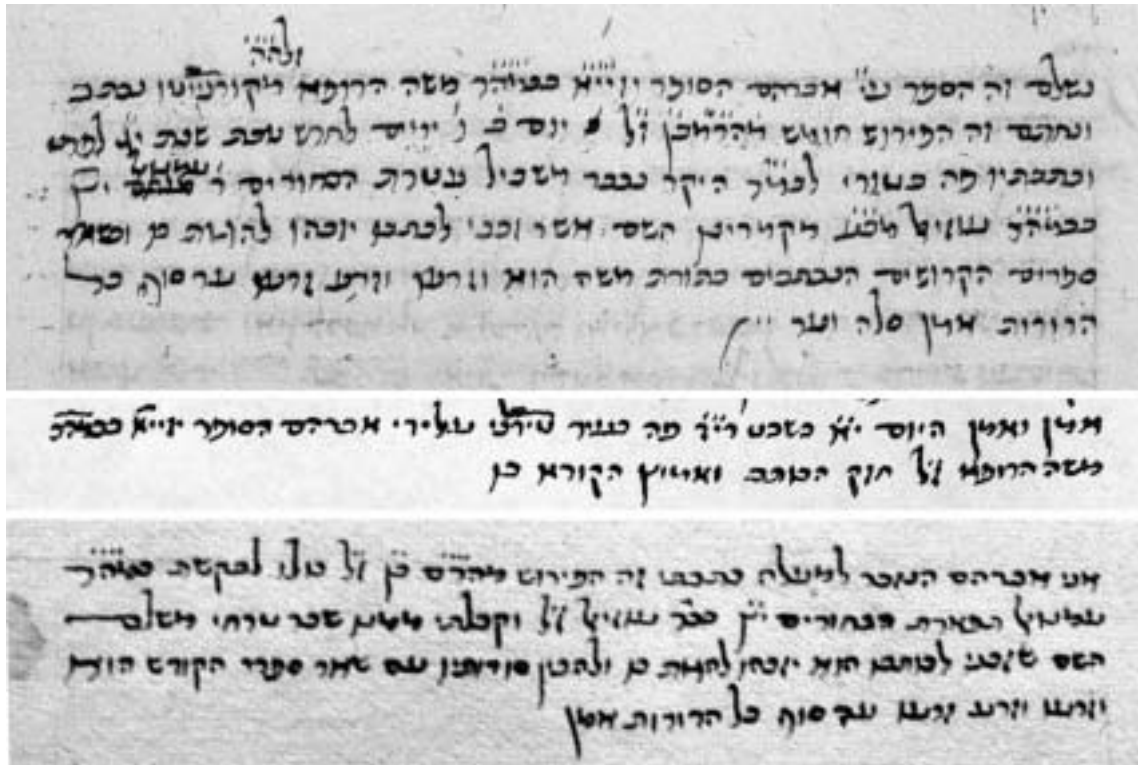 זלה״ה
נשלם זה הספר ע״י אברהם הסופר יזייא בכמוה״ר משה הרופא נכתב
ונחתם זה הפירוש חומש ז״ל יום ב׳ ימים לחדש טבת שנת לפרט
וכתבתיו פה לכמ״ר היקר נכבד משכיל עטרת הבחורים ר׳ עמנואל יץ
בכמוה״ר עוזיאל השם אשר זכני לכתבו יזכהו להגות בו ושאר
ספרים הקדושים הנכתבים בתורת משה הוא וזרעו וזרע זרעו עד סוף כל
הדורות אמן סלה ועד
אמן ואמן היום י״א בשבט רי״ד פה בעיר על ידי אברהם הסופר יזייא בכמוהר
משה הרופא ז״ל חזק הכותב ואמיץ הקורא בו
אני אברהם הנזכר למעלה כתבתי זה הפירוש ז״ל כולו לבקשת כמוה״ר
עמנואל תפארת הבחורים יץ בכ״ר עוזיאל ז״ל וקבלתי ממנו שכר טרחי משלם
השם שזכני לכותבו הוא יזכהו להגות בו ולהבין סודותיו עם שאר ספרי הקודש הוא
וזרעו וזרע זרעו עד סוף כל הדורות אמן